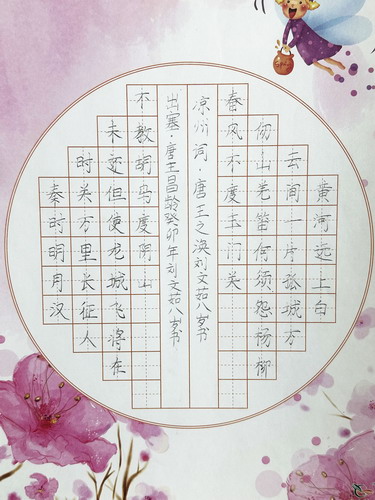 黄河远上白
云间一片孤城万
仞山羌笛何须怨杨柳
春风不度玉门关
凉州词·唐王之涣刘文茹八岁书
秦时明月汉
时关万里长征人
未还但使龙城飞将在
不教胡马度阴山
出塞·唐王昌龄癸卯年刘文茹八岁书